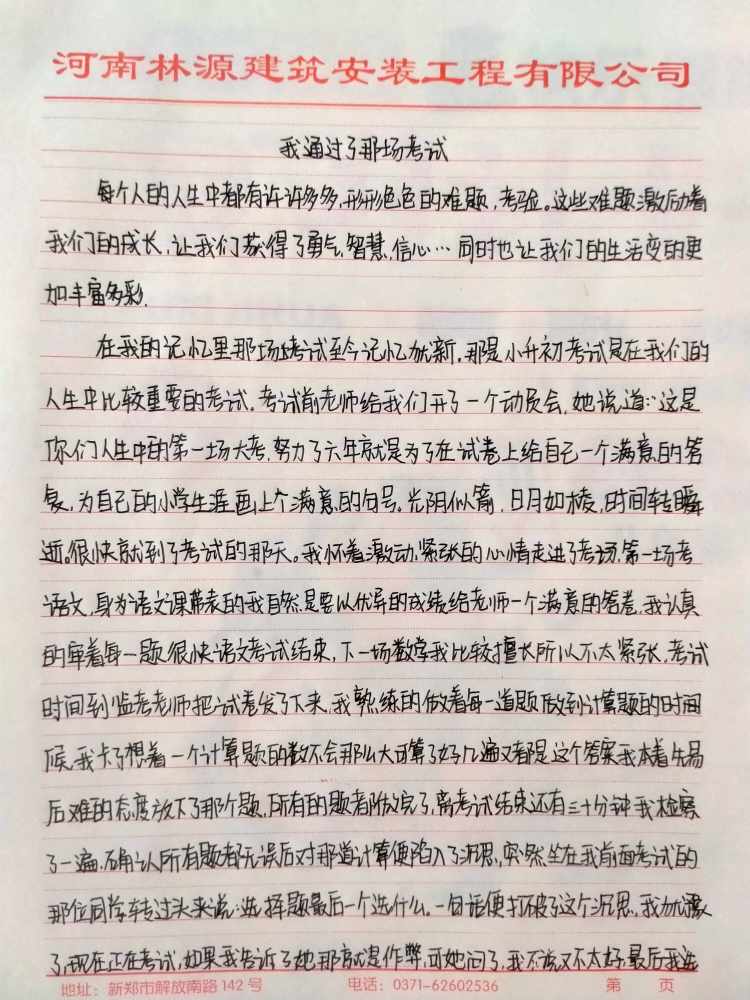 河南林源建筑安装工程有限公司
我通过了那场考试
每个人的人生中都有许许多多,形形色色的难题,考验。这些难题激励着
我们的成长,让我们获得了勇气,智慧,信心…同时也让我们的生活变的更
加丰富多彩.
在我的记忆里那场考试至今记忆犹新,那是小升初考试是在我们的
人生中比较重要的考试,考试前老师给我们开了一个动员会,她说道:"这是
你们人生中的第一场大考,努力了六年就是为了在试卷上给自己一个满意的答
复,为自己的小学生涯画上个满意的句号。光阴似箭,日月如梭,时间转瞬
逝。很快就到了考试的那天。我怀着激动,紧张的心情走进了考场,第一场考
语文,身为语文课带表的我自然是要以优异的成绩给老师一个满意的答卷,我认真
的审着每一题,很快语文考试结束,下一场数学我比较擅长所以不太紧张,考试
时间到监考老师把试卷发了下来,我熟练的做着每一道题,做到计算题的时间
候,我卡了想着一个计算题的数不会那么大可算了好几遍又都是这个答案我本着先易
后难的态度放下了那个题,所有的题都做完了,离考试结束还有三十分钟我检察
了一遍,确认所有题都无误后对那道计算便陷入了沉思,突然坐在我前面考试的
那位同学转过头来说:选择题最后一个选什么。一句话便打破了这个沉思,我犹豫
了,现在正在考试,如果我告诉了她那就是作弊,可她问了,我不说又不太好,最后我选
地址:新郑市解放南路142号 电话:0371-62602536 第 页